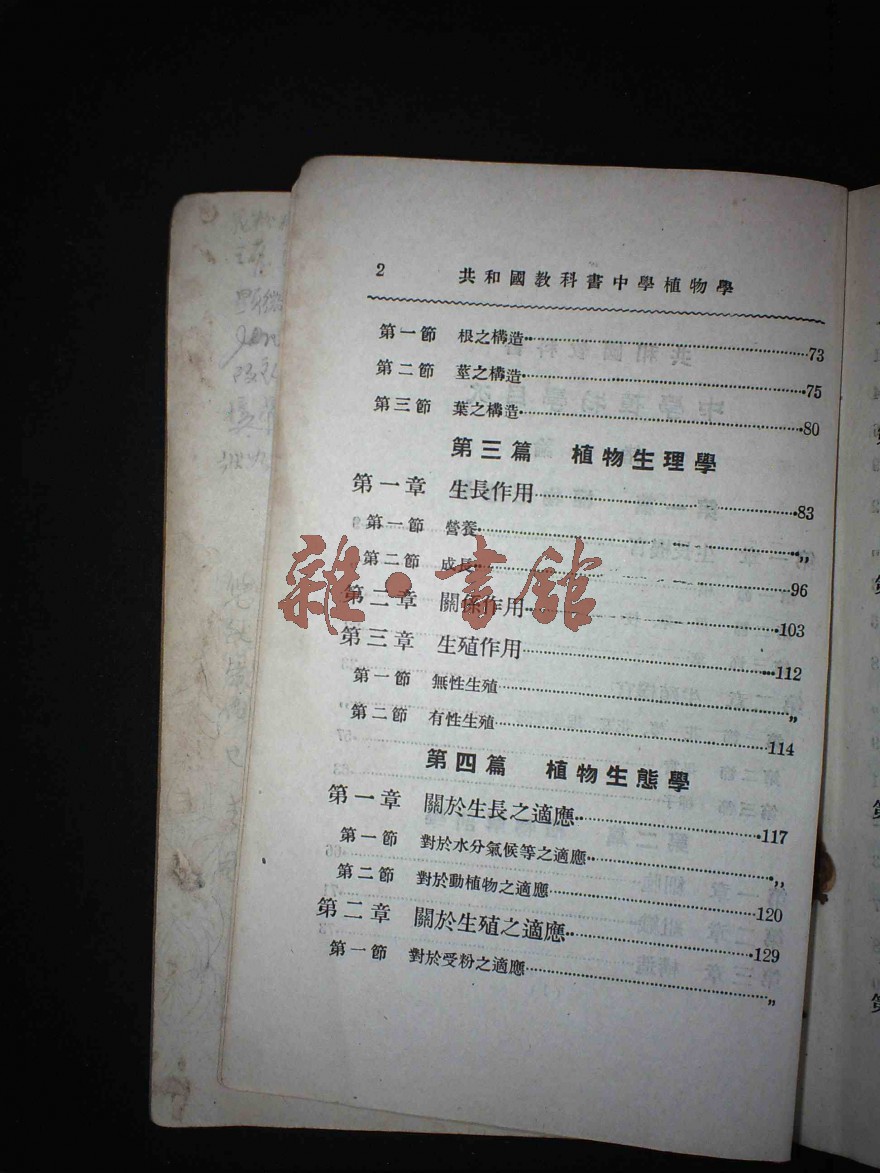 2 共和國教科書中學植物學
第一節 根之構造……73
第二節 莖之構造……75
第三節 葉之構造……80
第三篇 植物生理學
第一章 生長作用……83
第一節 營養……„
第二節 成長……96
第二章 關係作用……103
第三章 生殖作用……112
第一節 無性生殖……„
第二節 有性生殖……114
第四篇 植物生態學
第一章 關於生長之適應……117
第一節 對於水分氣候等之適應……„
第二節 對於動植物之適應……120
第二章 關於生殖之適應……129
第一節 對於受粉之適應……„
雜·書館